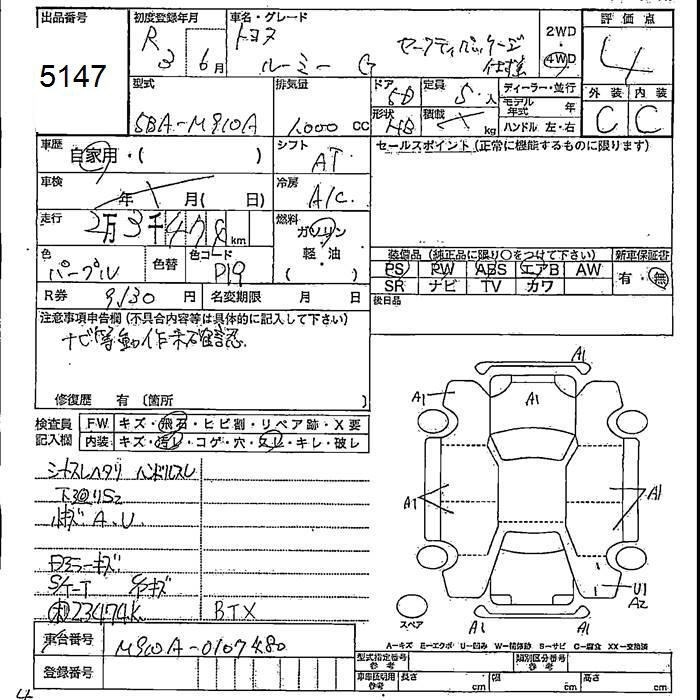 出品番号
5147
初度登録年月
R3 6月
車名・グレード
トヨタ
ルーミー G
セーフティパッケージ
2WD
4WD
評価点
4
外装 内装
C C
型式
5BA-M910A
排気量
1,000 cc
ドア
5D
定員
5人
形状
HB
積載
kg
ディーラー・並行
モデル年式 年
ハンドル 左・右
車歴
自家用・( )
シフト
AT
車検
年 月( 日)
冷房
A/C
走行
2万3千474km
燃料
ガソリン
軽・油
( )
色
パープル
色替
色コード
P19
R券
9,130円
名変期限 月 日
セールスポイント(正常に機能するものに限ります)
装備品(純正品に限り○をつけて下さい)
PS PW ABS エアB AW
SR ナビ TV カワ
新車保証書
有・無
後日品
注意事項申告欄(不具合内容等は具体的に記入して下さい)
ナビ等動作未確認
修復歴 有〔箇所 〕
検査員記入欄
FW キズ・飛石・ヒビ割・リペア跡・X要
内装 キズ・汚レ・コゲ・穴・スレ・キレ・破レ
シートスレヘタリ ハンドルスレ
A、U
キズ
23474K
BTX
車台番号
M910A-0107480
登録番号
A1
A1
A1
A1
A1
U1
A2
A1
A1
スペア
A-キズ E-エクボ U-凹み W-補修跡 S-サビ C-腐食 XX-交換済
型式指定番号 参考
類別区分番号 参考
車庫区切用 参考
長さ cm
幅 cm
高さ cm